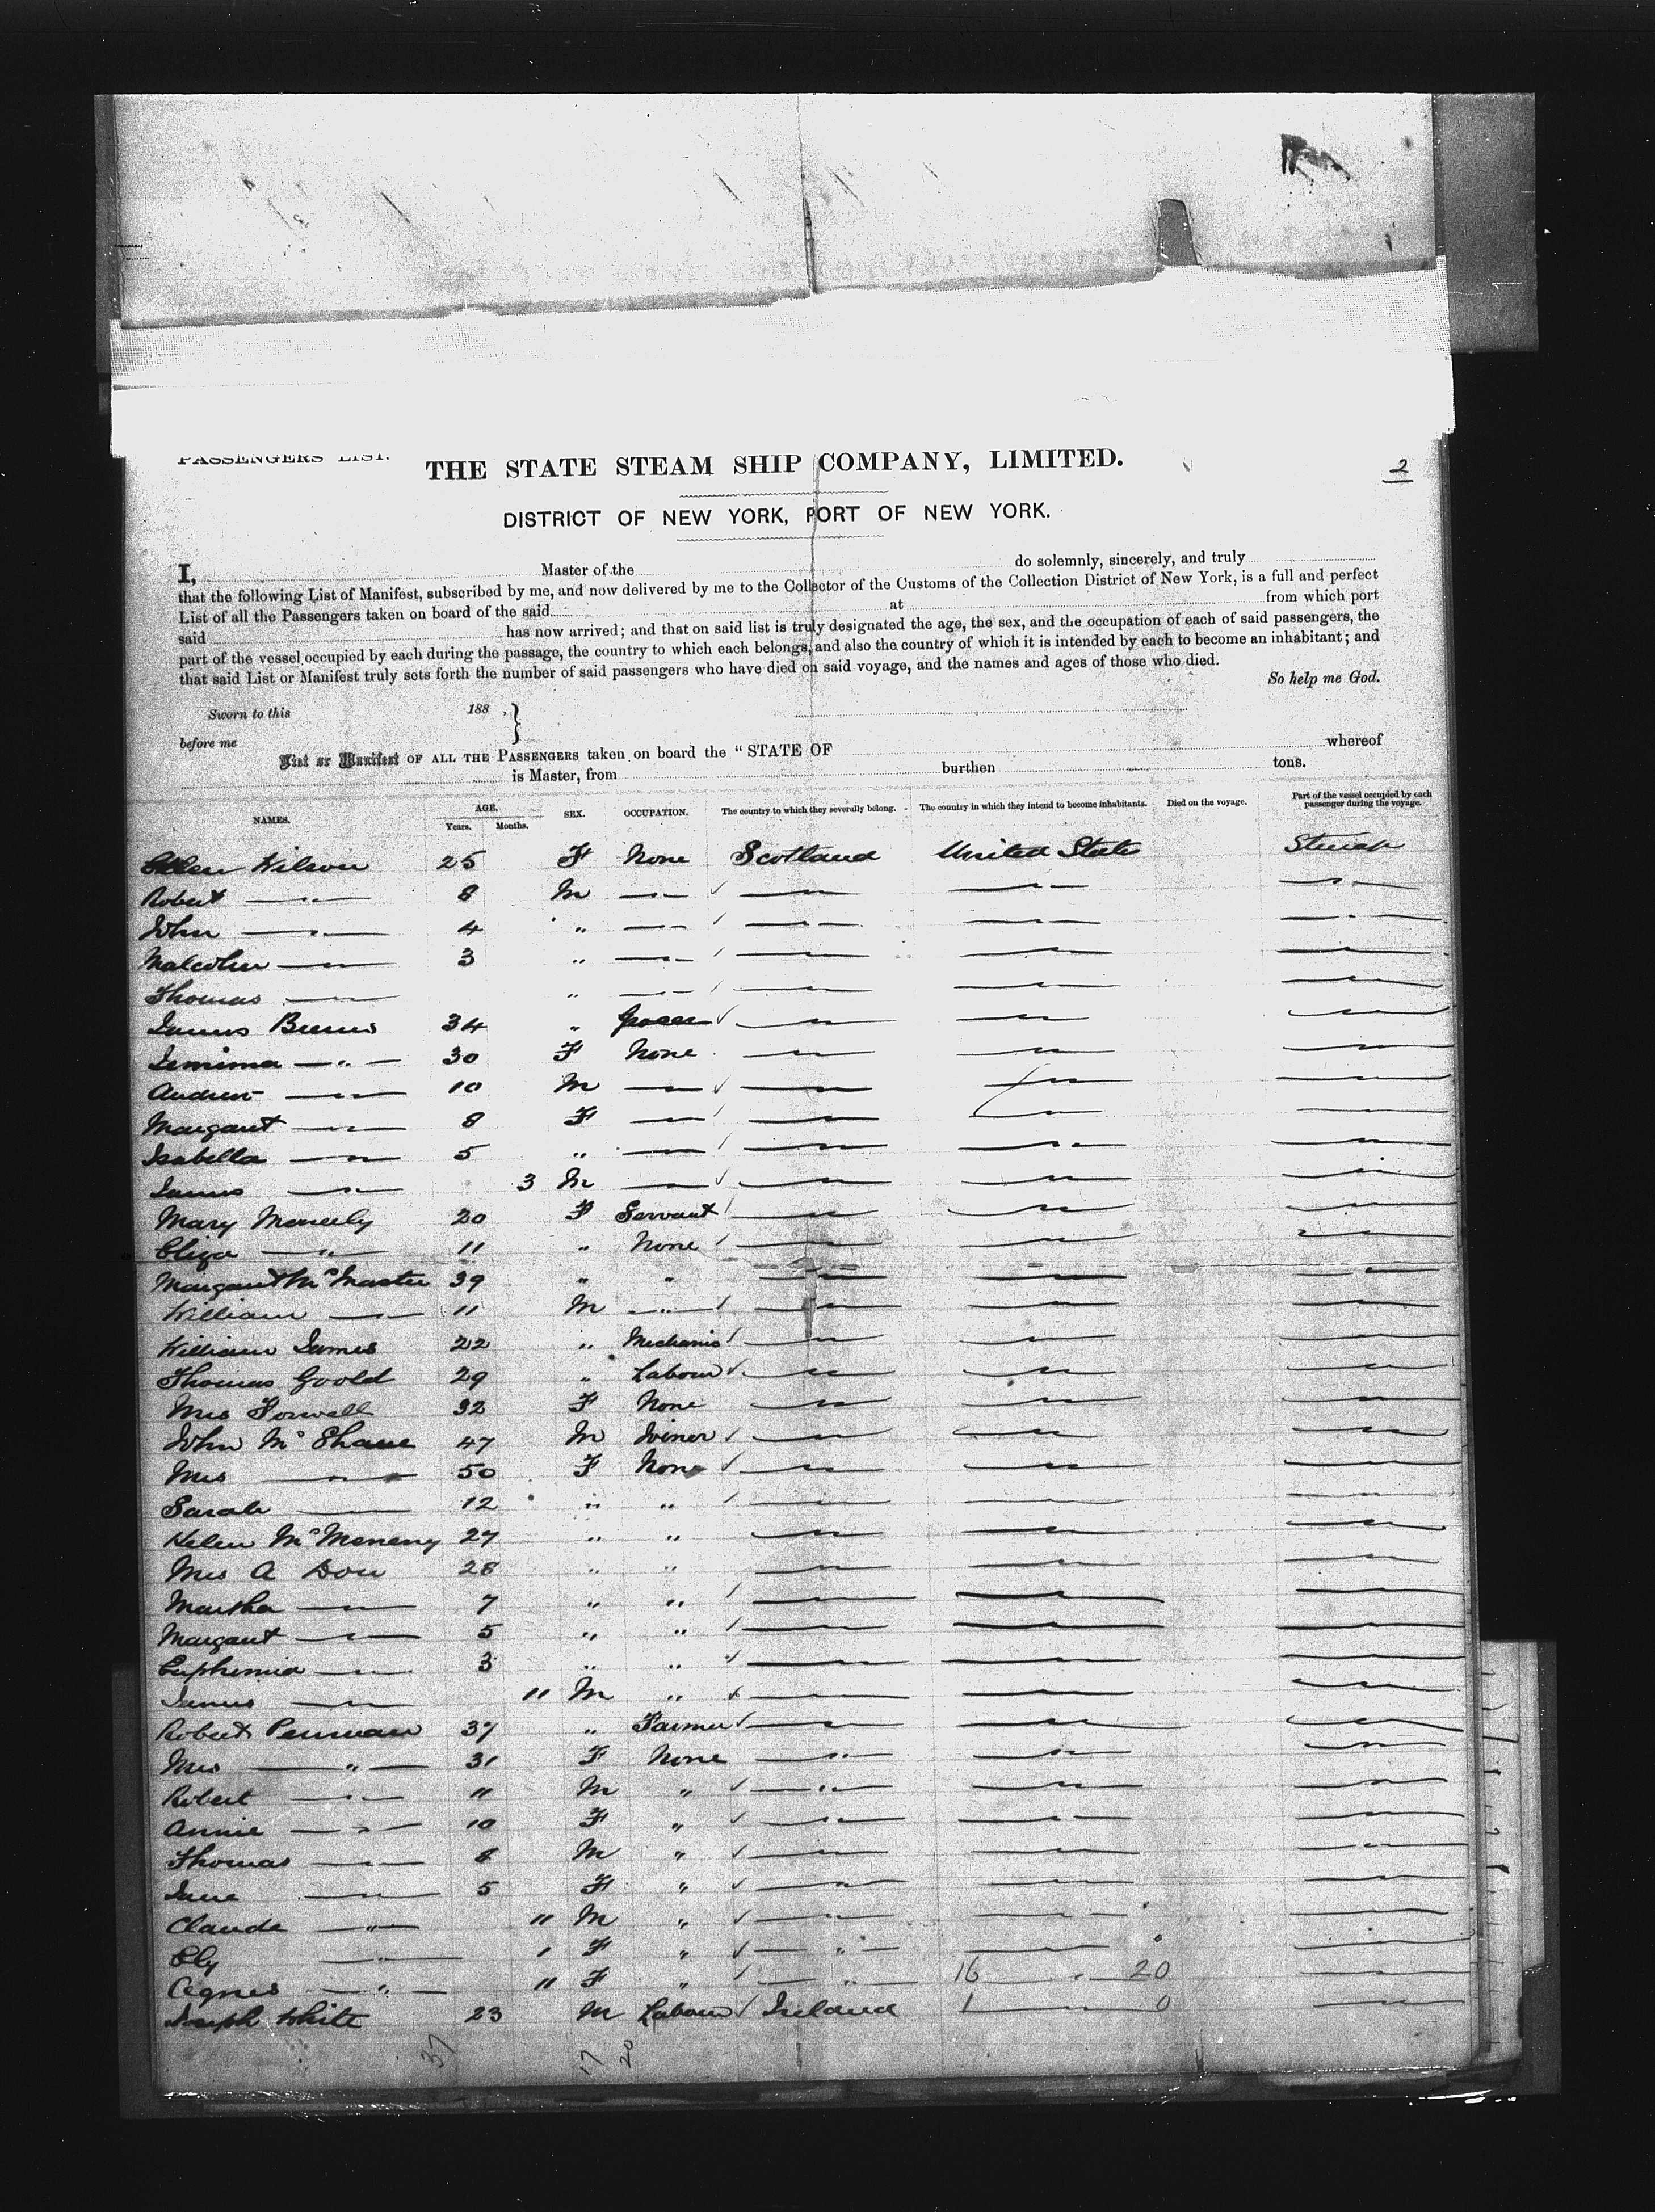 PASSENGERS LIST.
THE STATE STEAM SHIP COMPANY, LIMITED.
2
DISTRICT OF NEW YORK, PORT OF NEW YORK.
I, Master of the do solemnly, sincerely, and truly
that the following List of Manifest, subscribed by me, and now delivered by me to the Collector of the Customs of the Collection District of New York, is a full and perfect
List of all the Passengers taken on board of the said at from which port
said has now arrived; and that on said list is truly designated the age, the sex, and the occupation of each of said passengers, the
part of the vessel occupied by each during the passage, the country to which each belongs, and also the country of which it is intended by each to become an inhabitant; and
that said List or Manifest truly sets forth the number of said passengers who have died on said voyage, and the names and ages of those who died.
So help me God.
Sworn to this 188 .
before me
List or Manifest OF ALL THE PASSENGERS taken on board the "STATE OF whereof
is Master, from burthen tons.
NAMES. AGE. Years. Months. SEX. OCCUPATION. The country to which they severally belong. The country in which they intend to become inhabitants. Died on the voyage. Part of the vessel occupied by each passenger during the voyage.
Wilson 25 F None Scotland United States
Robert — " — 8 M — " —
John — " — 4 " — " —
Malcolm — " — 3 " — " —
Thomas — " — " — " —
James Burns 34 " Grocer
Jemima — " — 30 F None
Andrew — " — 10 M — " —
Margaret — " — 8 F — " —
Isabella — " — 5 " — " —
James — " — 3 M — " —
Mary 20 F Servant
Eliza — " — 11 " None
Margaret McMaster 39 " "
William — " — 11 M — " —
William James 22 " Mechanic
Thomas Goold 29 " Labour
Mrs 32 F None
John McShane 47 M Joiner
Mrs — " — 50 F None
Sarah — " — 12 " "
Helen McMeneny 27 " "
Mrs A Don 28 " "
Martha — " — 7 " "
Margaret — " — 5 " "
Euphemia — " — 3 " "
James — " — 11 M "
Robert Penman 37 " Farmer
Mrs — " — 31 F None
Robert — " — 11 M "
Annie — " — 10 F "
Thomas — " — 8 M "
Jane — " — 5 F "
Claude — " — 11 M "
— " — 1 F "
Agnes — " — 11 F " 16 20
Joseph White 23 M Labour Ireland 1 0
37 17 20